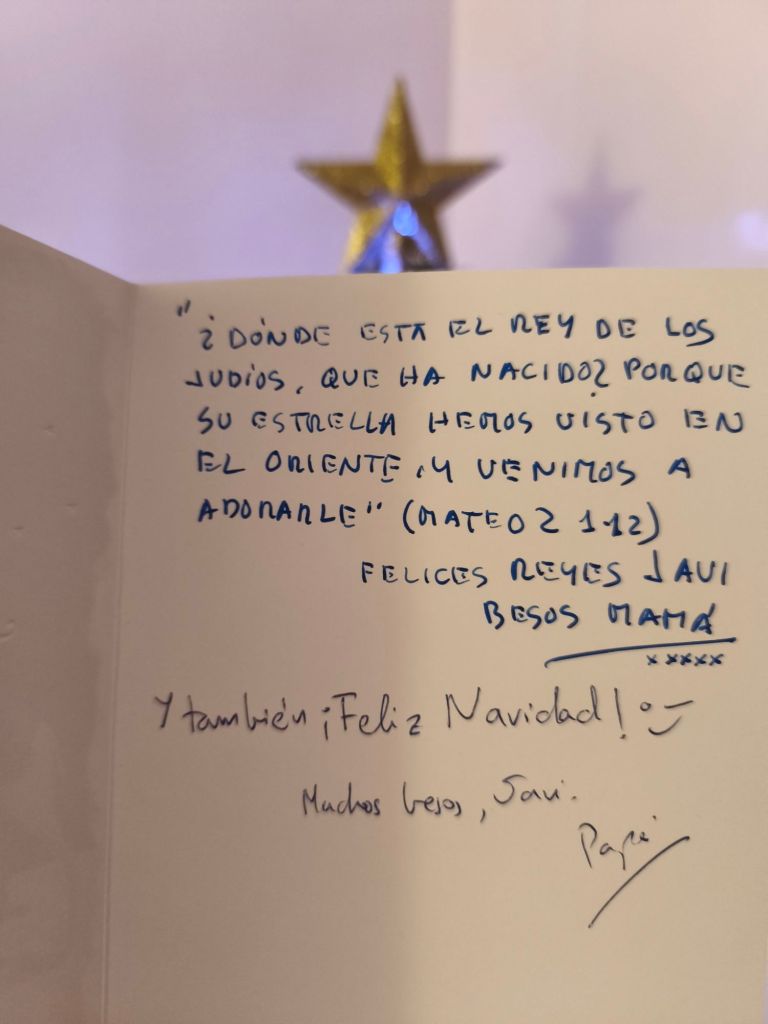 "¿DÓNDE ESTÁ EL REY DE LOS
JUDÍOS, QUE HA NACIDO? PORQUE
SU ESTRELLA HEMOS VISTO EN
EL ORIENTE, Y VENIMOS A
ADORARLE" (MATEO 2 1-12)
FELICES REYES JAVI
BESOS MAMÁ
xxxxx
Y también ¡Feliz Navidad! :)
Muchos besos, Javi.
Papá